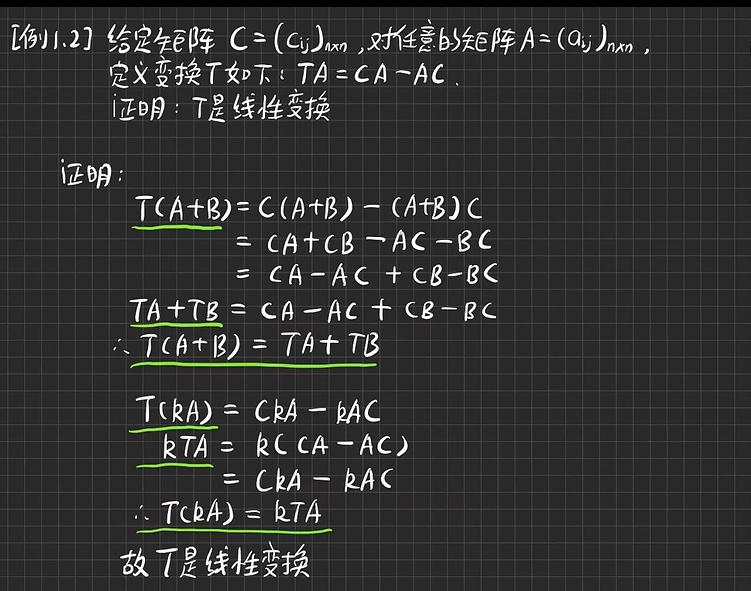 [例1.2] 给定矩阵 C=(cij)n×n ,对任意的矩阵A=(aij)n×n ,
定义变换T如下: TA=CA-AC.
证明: T是线性变换
证明:
T(A+B)=C(A+B)-(A+B)C
= CA+CB-AC-BC
= CA-AC+CB-BC
TA+TB = CA-AC+CB-BC
∴ T(A+B) = TA+TB
T(kA) = CkA-kAC
kTA = k(CA-AC)
= CkA-kAC
∴ T(kA) = kTA
故T是线性变换